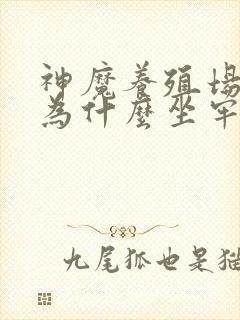 神魔養殖場
為什麼坐牢
九尾狐也是貓